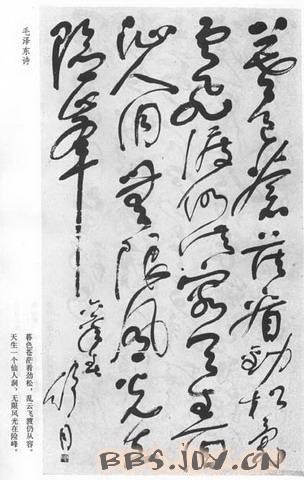 暮色蒼茫看勁松亂
雲飛渡仍從容天生一个
仙人洞無限風光在
險峰
毛泽东诗
暮色苍茫看劲松，乱云飞渡仍从容。
天生一个仙人洞，无限风光在险峰。
BBS.JOY.CN